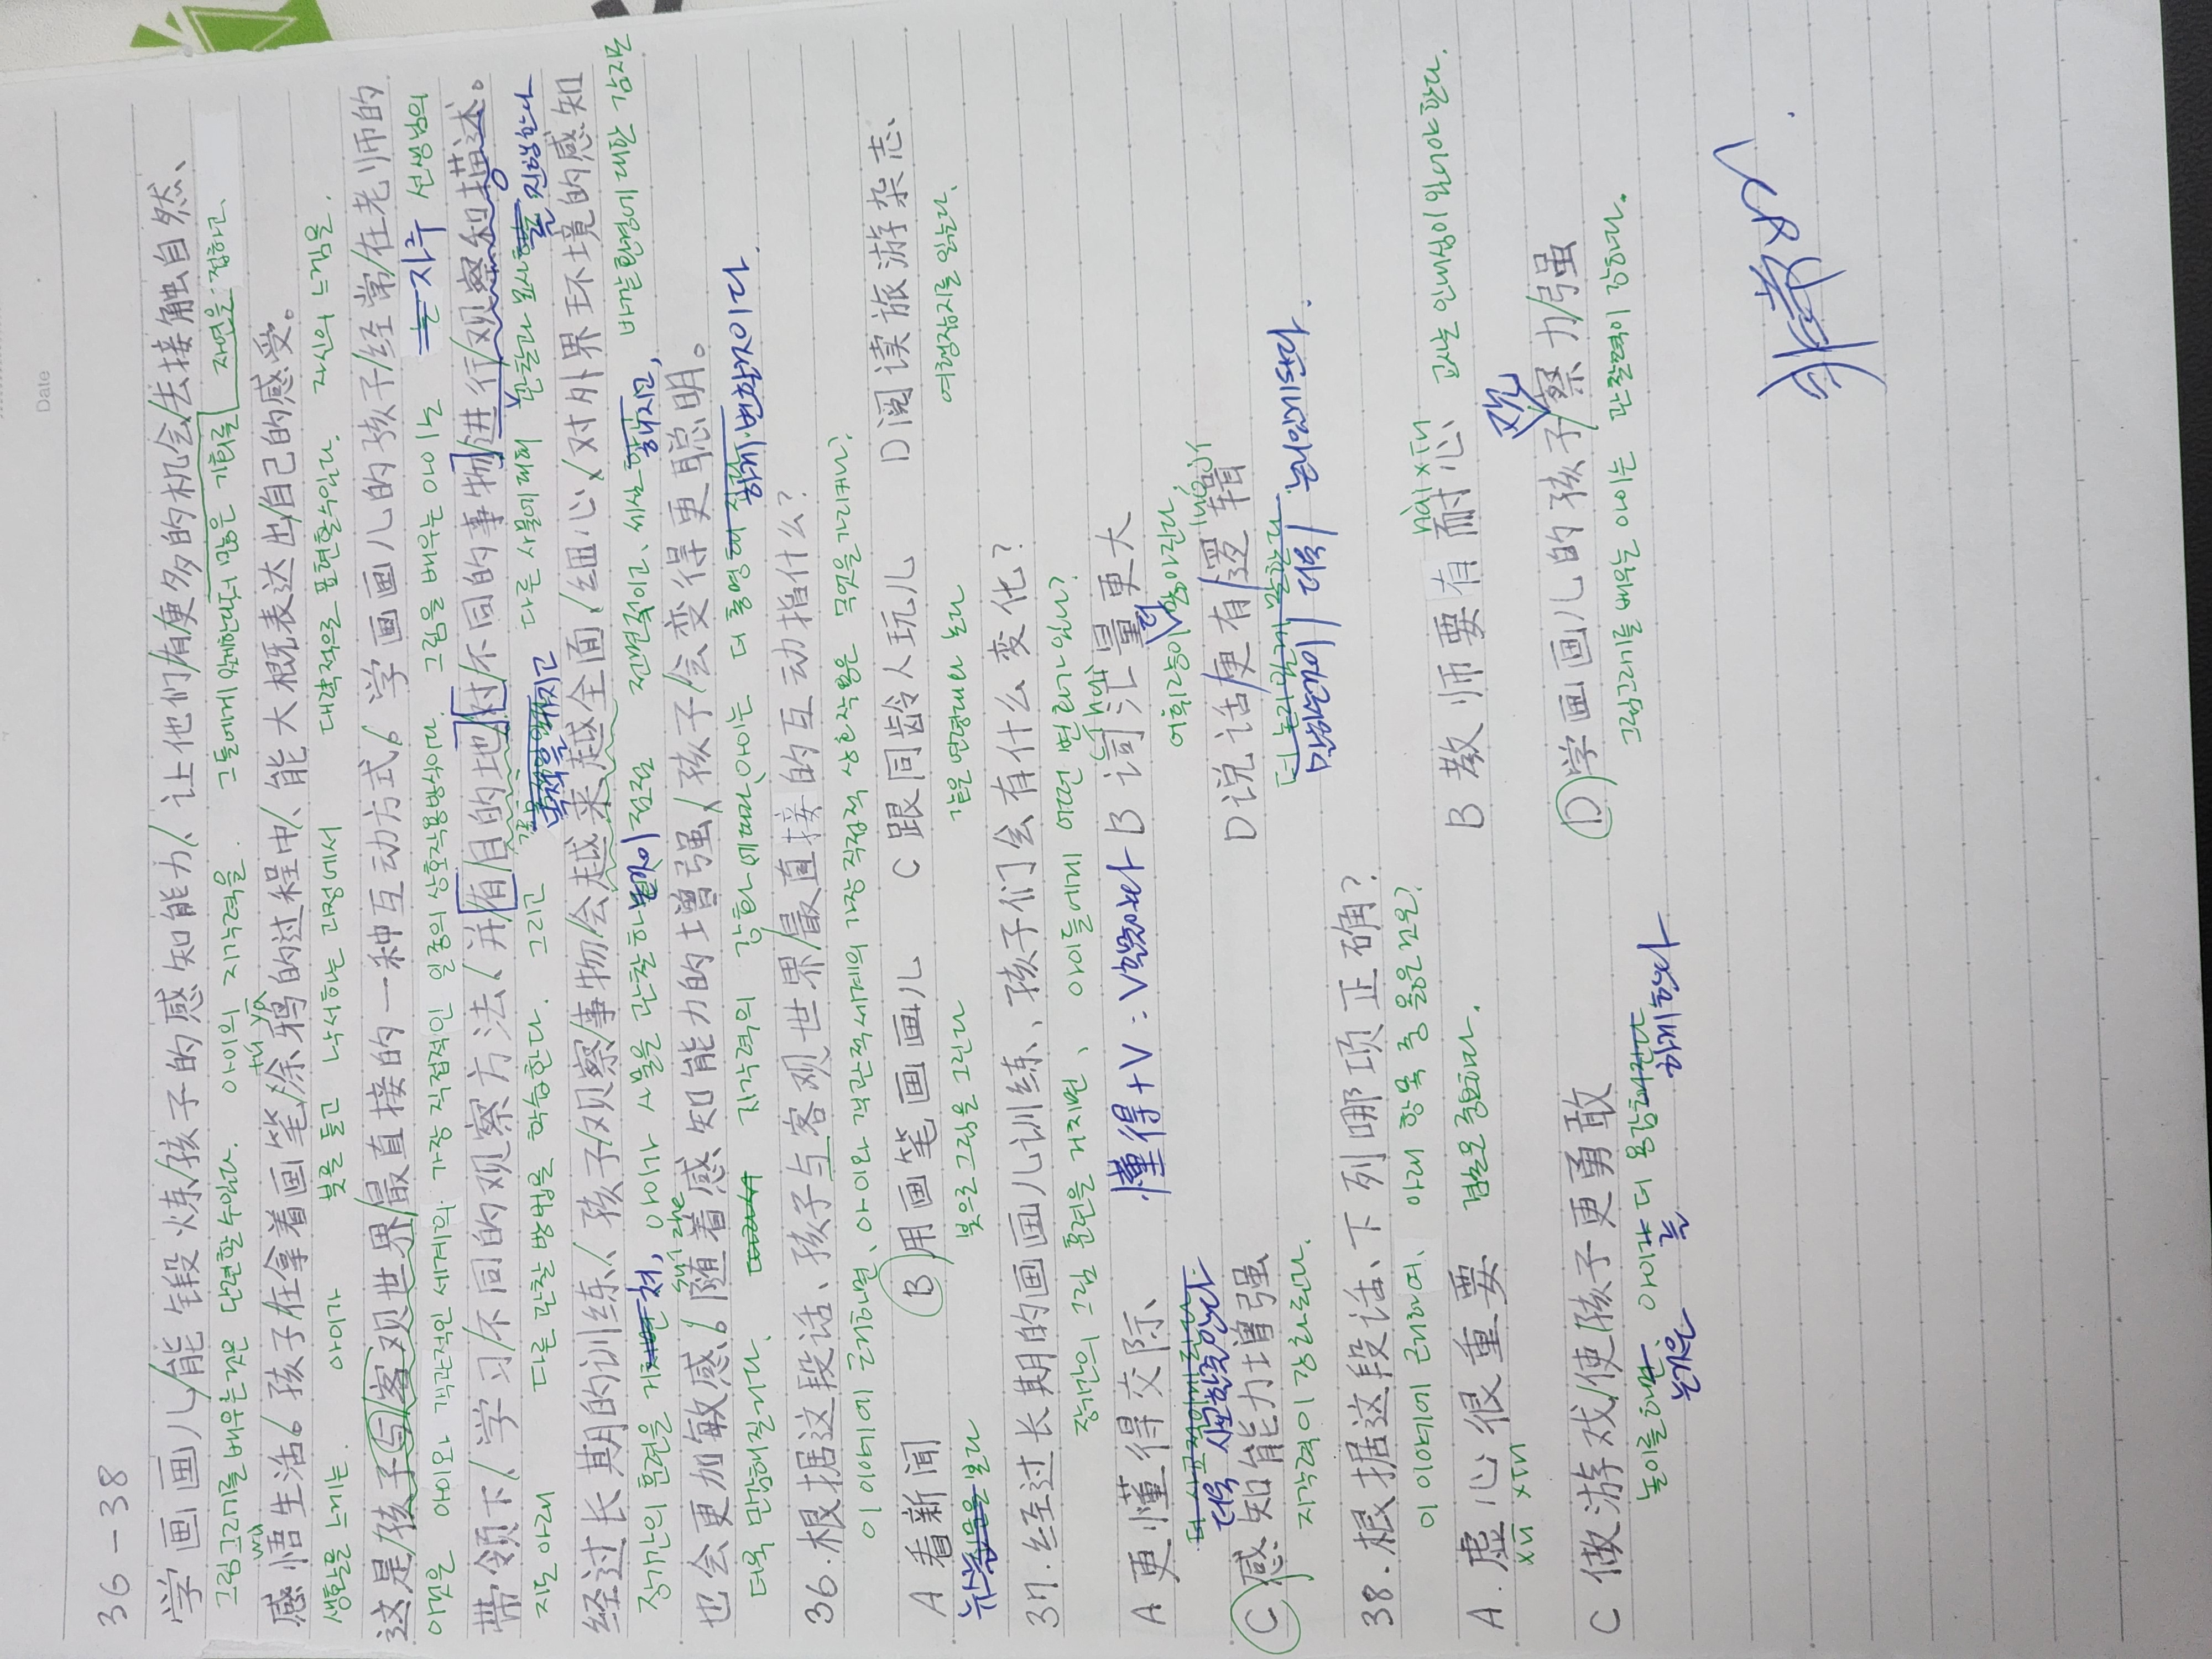 Date
36-38
学画画儿/能锻炼/孩子的感知能力/、让他们/有/更多的机会/去接触自然、
그림그리기를 배우는것은 단련할수있다. 아이의 지각력을. 그들에게 더 많은 기회를 자연을 접하고
感悟生活。孩子/在拿着画笔/涂鸦的过程中/、能大概表达出/自己的感受。
wù tú yā
생활을 느끼는. 아이가 붓을 들고 낙서하는 과정에서 대략적으로 표현할수있다. 자신의 느낌을.
这是/孩子与客观世界/最直接的一种互动方式。学画画儿的孩子/经常/在老师的
이것은 아이와 객관적인 세계의 가장 직접적인 일종의 상호작용방식이다. 그림을 배우는 아이는 자주 선생님의
带领下/、学习/不同的观察方法/、并/有/目的地/对/不同的事物/进行/观察和描述。
지도 아래 다른 관찰 방법을 학습한다. 그리고 목적을 가지고 다른 사물에 대해 관찰과 묘사를 진행한다
经过长期的训练/、孩子/观察/事物/会越来越全面/细心/对外界环境的感知
장기간의 훈련을 거쳐, 아이가 사물을 관찰하는것이 점점 전면적이고, 세심해지고, 바깥환경에 대한 감지도
也会更加敏感。随着感知能力的增强/孩子/会变得更聪明。
suí zhe
더욱 민감해질거다. 지각력의 강화에 따라, 아이는 더 총명하게 변할것이다.
36.根据这段话、孩子与客观世界/最直接的互动指什么?
이 이야기에 근거하면, 아이와 객관적 세계의 가장 직접적 상호작용은 무엇을 가리키나?
A 看新闻 Ⓑ用画笔画画儿 C 跟同龄人玩儿 D 阅读旅游杂志、
뉴스를 보다 붓으로 그림을 그린다 같은 연령대와 논다 여행잡지를 읽는다.
37.经过长期的画画儿训练、孩子们会有什么变化?
장기간의 그림 훈련을 거치면, 아이들에게 어떤 변화가 있나?
A 更懂得交际、 懂得+V : V할줄안다 B 词汇量更大
huì
더욱 사교할줄안다 어휘량이 더 많아진다.
Ⓒ感知能力增强 D说话/更有/逻辑
지각력이 강화된다. 말하는것이/더욱/논리있게된다.
38.根据这段话、下列哪项正确?
이 이야기에 근거하여, 아래 항목 중 옳은것은?
A.虚心很重要 B 教师要有耐心
xū xīn nài xīn
겸손은 중요하다. 교사는 인내심이 있어야 한다.
C 做游戏/使孩子更勇敢 Ⓓ学画画儿的孩子/观察力/强
놀이를 하는것은 아이를 더 용감하게한다 그림그리기를 배우는 아이는 관찰력이 강하다.